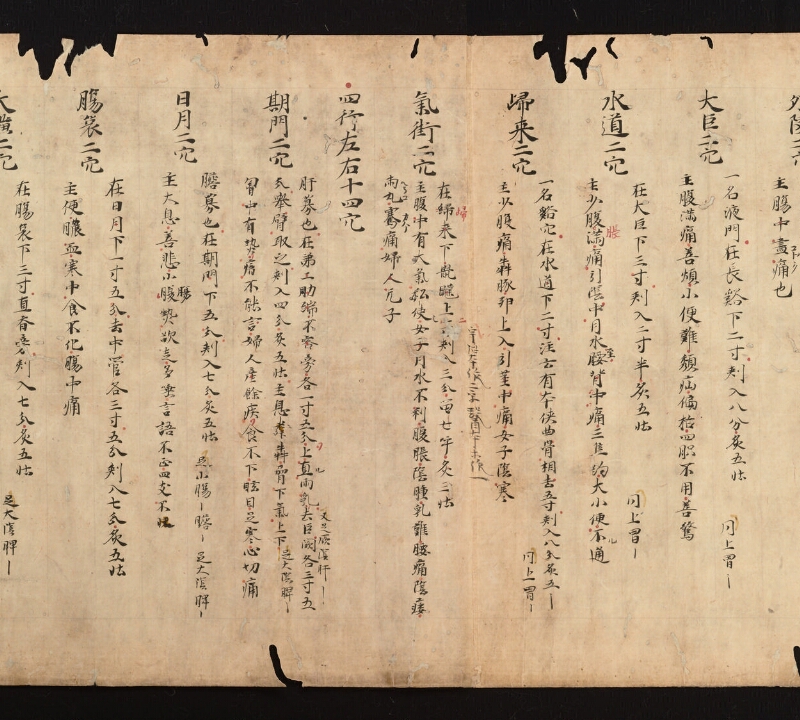 外陵二穴
主腸中盡痛也
大巨二穴
一名液門在長谿下二寸刾入八分灸五壮
同上胃
主腹滿痛善煩小便難㿗病偏枯四支不用善驚
水道二穴
在大巨下三寸刾入二寸半灸五壮
同上胃
主少腹滿痛引陰中月水腰背中痛三焦約大小便不通
歸来二穴
一名谿穴在水道下二寸注云有本侠曲骨相去五寸刾入八分灸五
同上胃
主少腹痛奔豚卵上入引茎中痛女子陰寒
氣街二穴
在歸来下鼠鼷上一寸刾入三分留七呼灸三壮
主腹中有大氣 使女子月水不利腹脹陰腫乳難腰痛陰痿
兩丸騫痛婦人无子
四行左右十四穴
期門二穴
肝募也在第二肋端不容旁各一寸五分上直兩乳去巨闕各三寸五
又足厥陰肝
分舉臂取之刾入四分灸五壮主息奔 胃下氣上下
足太陰脾
匈中有熱 不能言婦人産餘疾食不下眩目足寒心切痛
日月二穴
膽募也在期門下五分刾入七分灸五壮
足太陰脾
主大息善悲小腹熱欲走多 言語不正四支不收
腸裒二穴
在日月下一寸五分去中管各三寸五分刾入七分灸五壮
主便膿血寒中食不化腸中痛
大橫二穴
在腸裒下三寸直齊旁刾入七分灸五壮
足太陰脾